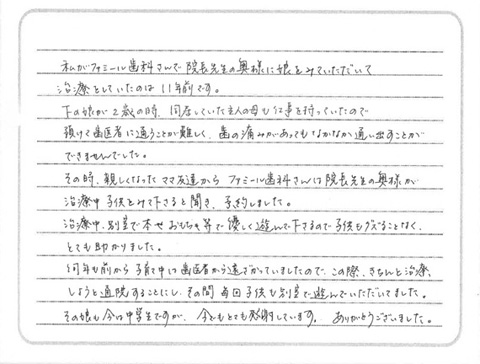 私がファミール歯科さんで院長先生の奥様に娘をみていただいて
治療としていたのは11年前です。
下の娘が2歳の時、同居していた主人の母も仕事を持っていたので
預けて歯医者に通うことが難しく、歯の痛みがあってもなかなか通い出すことが
できませんでした。
その時、親しくなったママ友達からファミール歯科さんは院長先生の奥様が
治療中子供をみて下さると聞き、予約しました。
治療中、別室で本やおもちゃ等で優しく遊んで下さるので子供もグズることなく、
とても助かりました。
何年も前から子育て中は歯医者から遠ざかっていましたので、この際、きちんと治療
しようと通院することにし、その間毎回子供も別室で遊んでいただいてました。
その娘も今は中学生ですが、今でもとても感謝しています。ありがとうございました。